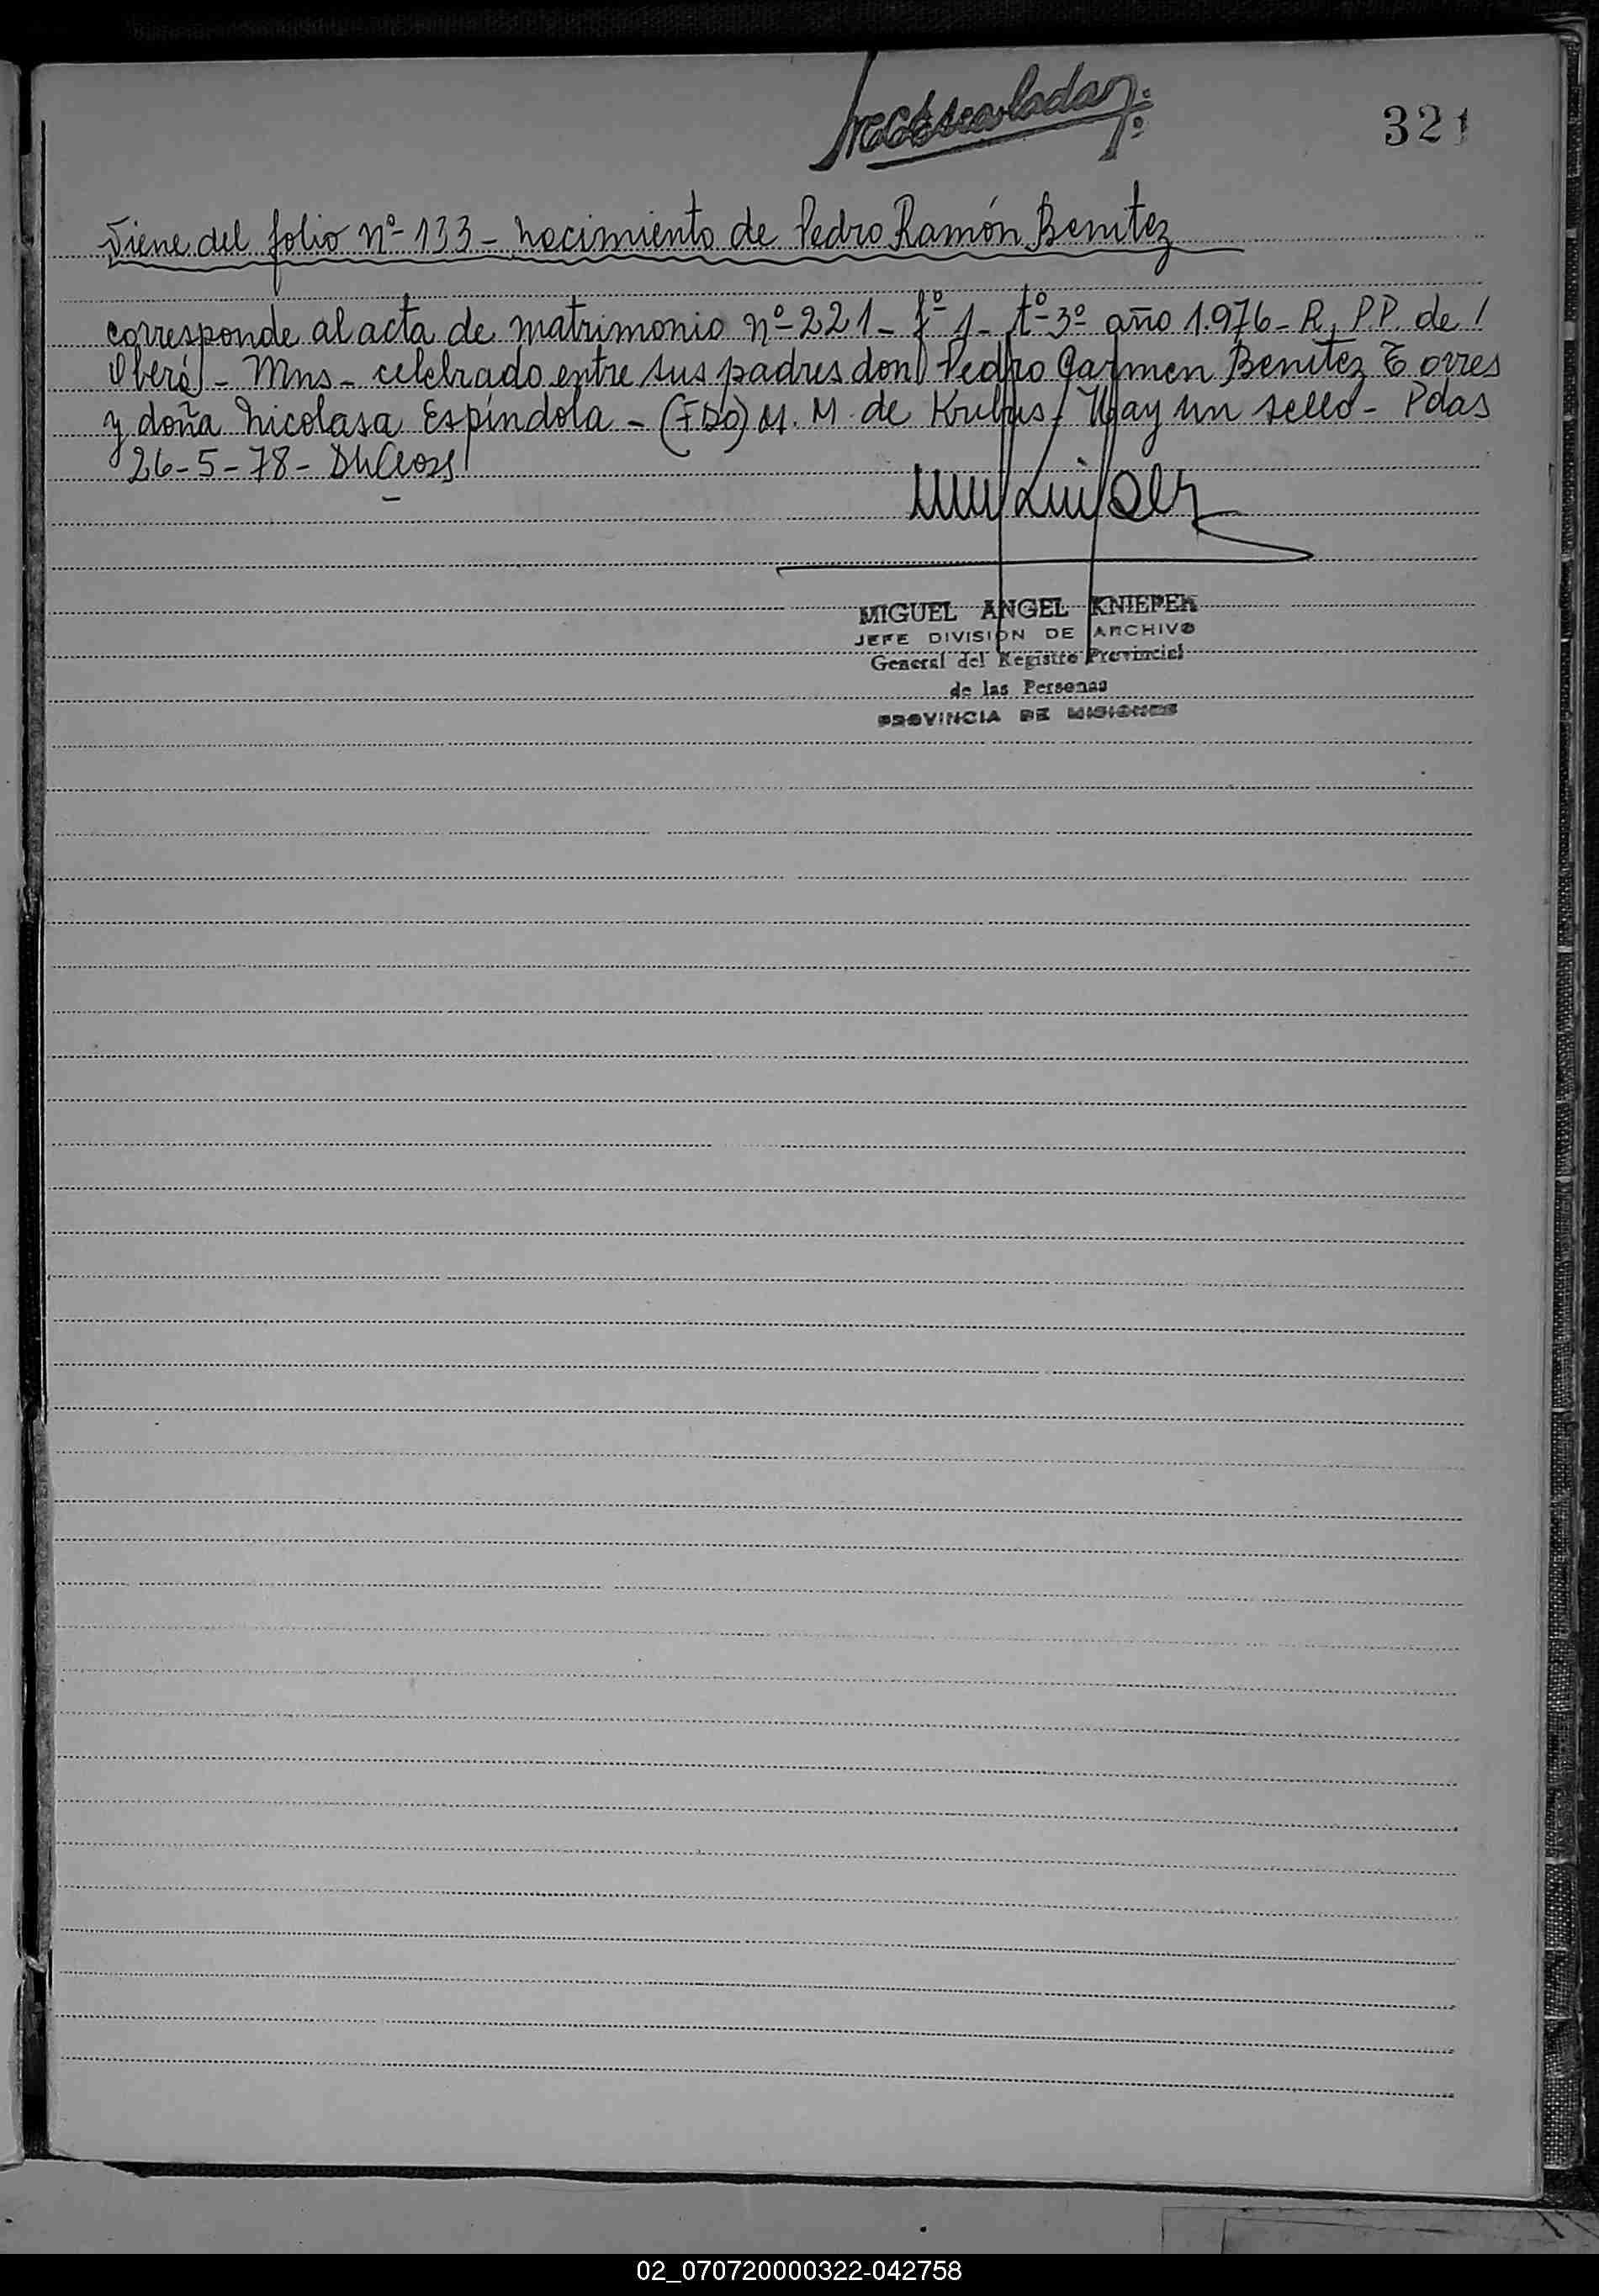 321
Viene del folio nº 133 - Nacimiento de Pedro Ramón Benitez
corresponde al acta de matrimonio nº 221 - fº 1 - tº 3º año 1.976 - R. P.P. de /
Oberá - Mns - celebrado entre sus padres don Pedro Carmen Benitez Torres
y doña Nicolasa Espíndola - (FDO) M. M. de Krebus - Hay un sello - Pdas
26-5-78 -
MIGUEL ANGEL KNIEPER
JEFE DIVISION DE ARCHIVO
General del Registro Provincial
de las Personas
PROVINCIA DE MISIONES
02_070720000322-042758